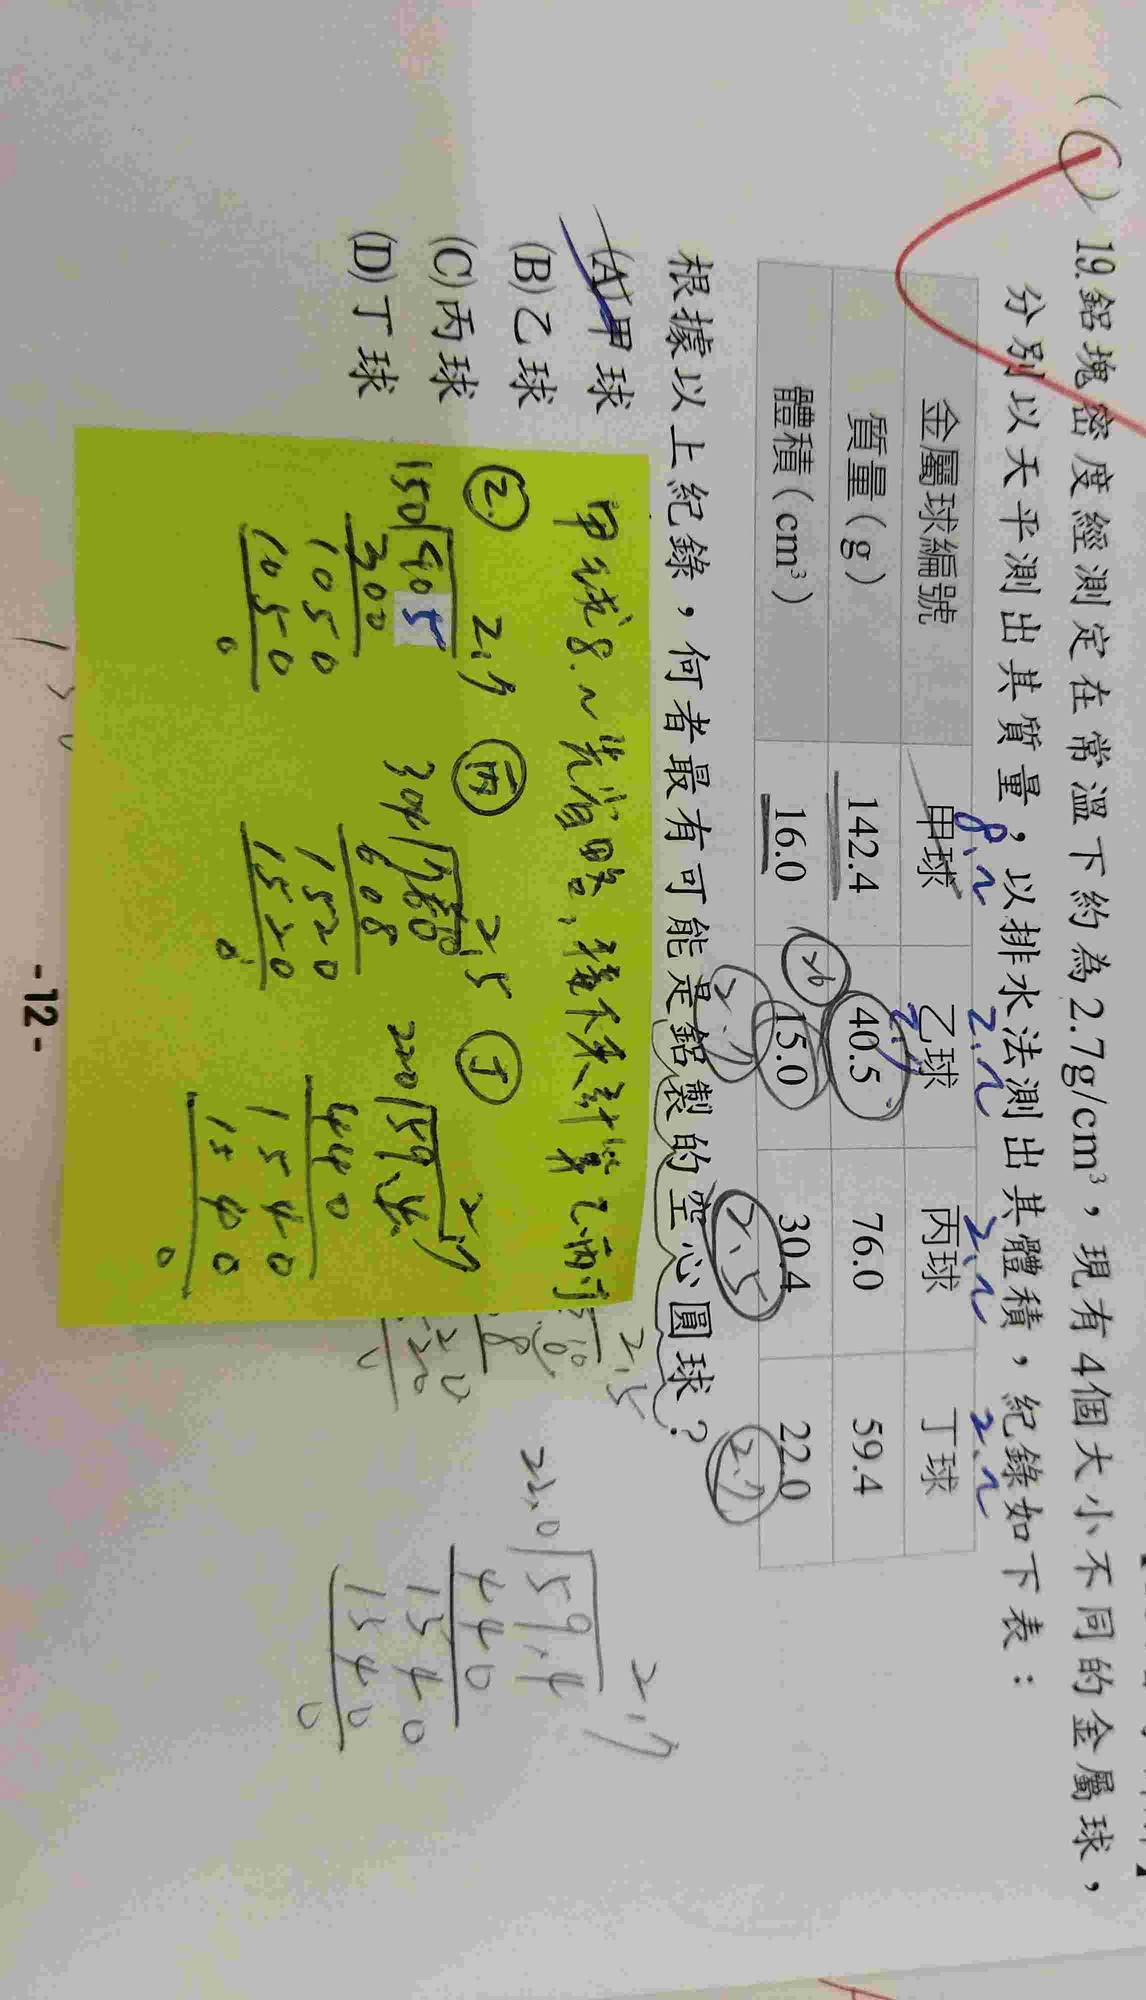 (C) 19.鋁塊密度經測定在常溫下約為2.7g/cm³，現有4個大小不同的金屬球，
分別以天平測出其質量，以排水法測出其體積，紀錄如下表：
8.~ 2.~ 2.~ 2.~
金屬球編號 甲球 乙球 丙球 丁球
質量(g) 142.4 40.5 76.0 59.4
體積(cm³) 16.0 15.0 30.4 22.0
2.7 2.5 2.7
根據以上紀錄，何者最有可能是鋁製的空心圓球？
(A)甲球
(B)乙球
(C)丙球
(D)丁球
甲球8.~先省略，接下來計算乙丙丁
乙 2.7
150 405
300
1050
1050
0
丙 2.5
304 760
608
1520
1520
0
丁 2.7
220 594
440
1540
1540
0
2.7
22.0 59.4
440
1540
1540
0
-12-